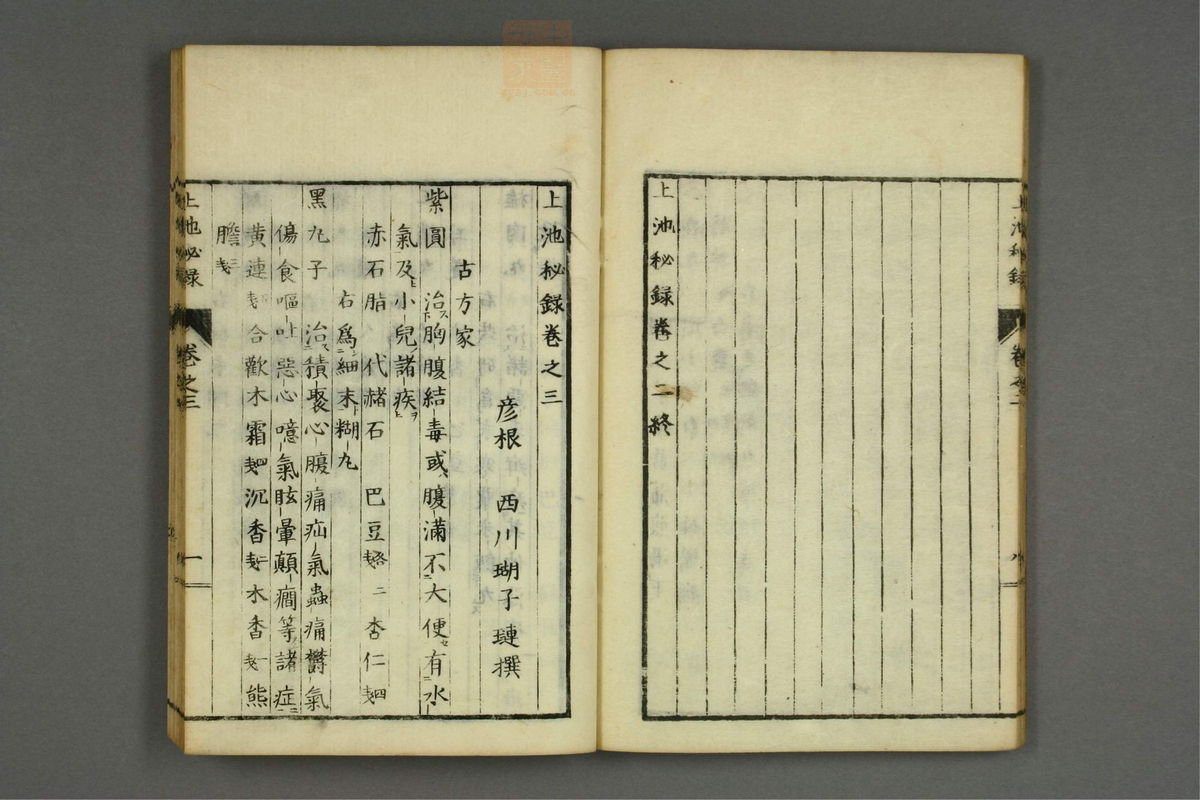 上池秘録
卷之二
八
上池秘録卷之二終
上池秘録卷之三
彦根 西川瑚子璉撰
古方家
紫圓 治胸腹結毒或腹滿不大便有水
氣及小兒諸疾
赤石脂 代赭石 巴豆 各二 杏仁 四
右爲細末糊丸
黑丸子 治積聚心腹痛疝氣蟲痛欝氣
傷食嘔吐惡心噫氣眩暈顛癎等諸症
黄連 合歡木霜 四 沉香 二 木香 一 熊
膽 三
上池秘録
卷之三
一